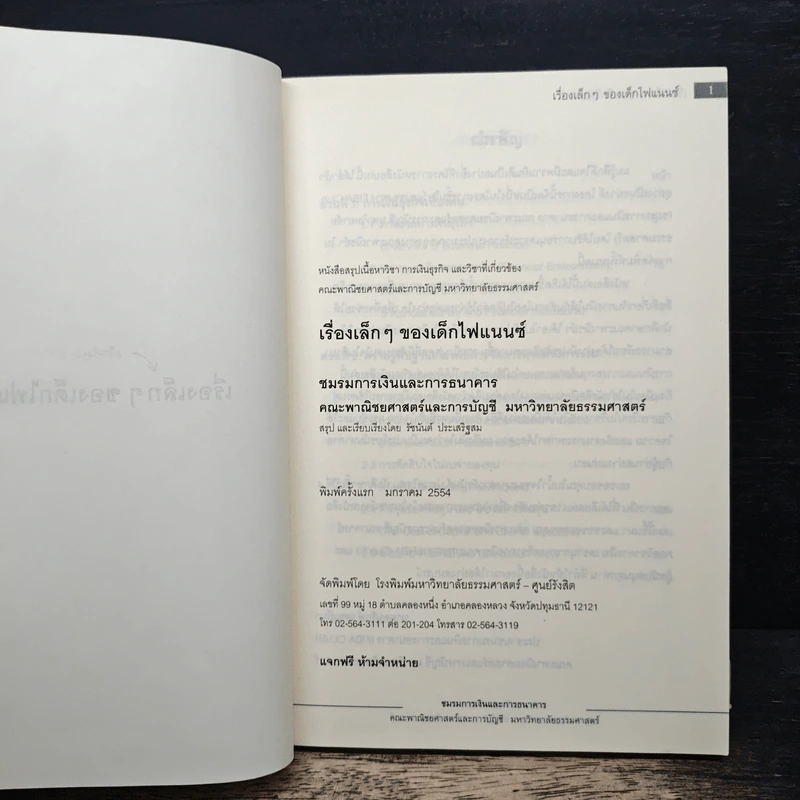 เรื่องเล็ก ๆ ของเด็กไฟแนนซ์ 1
หนังสือสรุปเนื้อหาวิชา การเงินธุรกิจ และวิชาที่เกี่ยวข้อง
คณะพาณิชยศาสตร์และการบัญชี มหาวิทยาลัยธรรมศาสตร์
เรื่องเล็ก ๆ ของเด็กไฟแนนซ์
ชมรมการเงินและการธนาคาร
คณะพาณิชยศาสตร์และการบัญชี มหาวิทยาลัยธรรมศาสตร์
สรุป และเรียบเรียงโดย รัชนันต์ ประเสริฐสม
พิมพ์ครั้งแรก มกราคม 2554
จัดพิมพ์โดย โรงพิมพ์มหาวิทยาลัยธรรมศาสตร์ – ศูนย์รังสิต
เลขที่ 99 หมู่ 18 ตำบลคลองหนึ่ง อำเภอคลองหลวง จังหวัดปทุมธานี 12121
โทร 02-564-3111 ต่อ 201-204 โทรสาร 02-564-3119
แจกฟรี ห้ามจำหน่าย
ชมรมการเงินและการธนาคาร
คณะพาณิชยศาสตร์และการบัญชี มหาวิทยาลัยธรรมศาสตร์